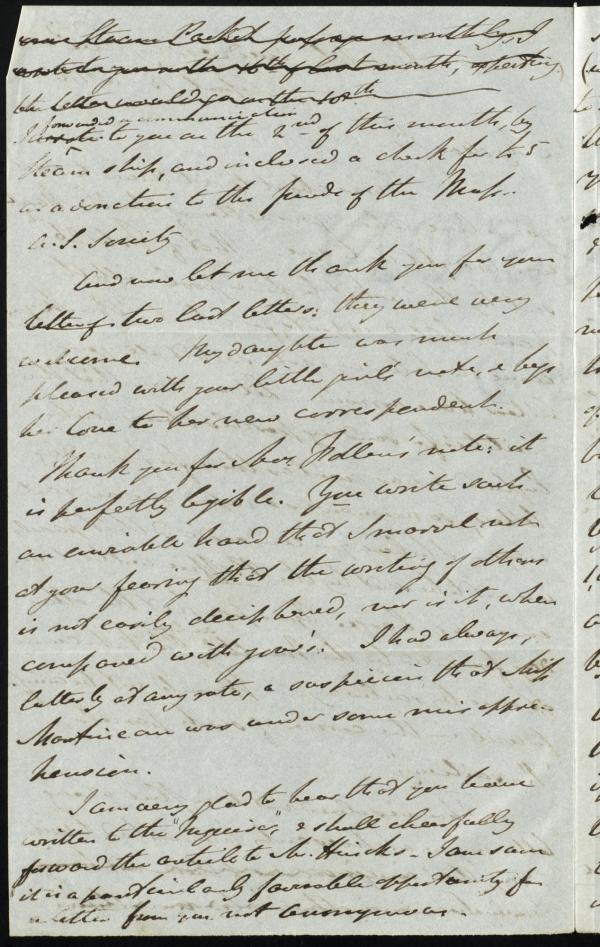 one Steam Packet passage monthly, I
wrote to you on the 16th of last month, expecting
the letter would go on the 18th
forwarded a communication
I wrote to you on the 2nd of this month, by
Steam ship, and inclosed a check for £5
as a donation to the funds of the Mass.
A.S. Society
And now let me thank you for your
letter of two last letters: they were very
welcome. My daughter was much
pleased with your little girl's note, & begs
her love to her new correspondent.
Thank you for Mrs. Follen's note: it
is perfectly legible. You write such
an enviable hand that I marvel not
at your fearing that the writing of others
is not easily deciphered, nor is it, when
compared with your's. I had always,
latterly at any rate, a suspicion that Miss
Martineau was under some misappre-
hension.
I am very glad to hear that you have
written to the "Inquirer," & shall cheerfully
forward the article to Mr. Hincks. I am sure
it is a particularly favorable opportunity for
a letter from you not anonymous.